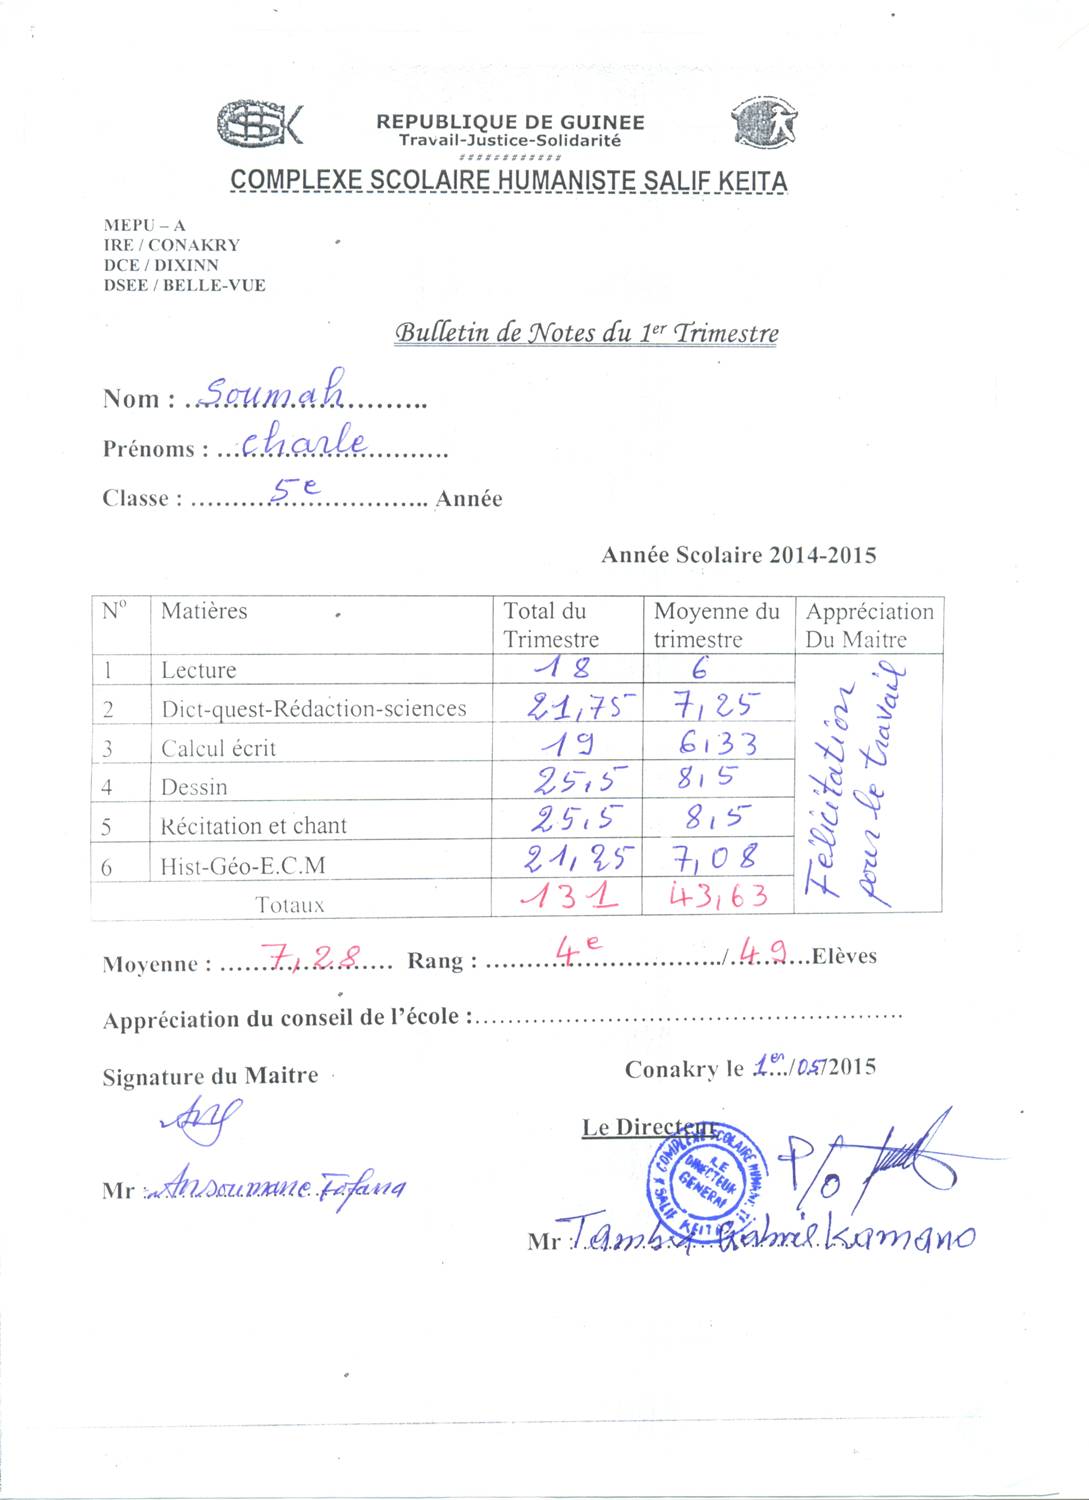 REPUBLIQUE DE GUINEE
Travail-Justice-Solidarité
############
COMPLEXE SCOLAIRE HUMANISTE SALIF KEITA
MEPU – A
IRE / CONAKRY
DCE / DIXINN
DSEE / BELLE-VUE
Bulletin de Notes du 1er Trimestre
Nom : Soumah
Prénoms : charle
Classe : 5e Année
Année Scolaire 2014-2015
N° Matières Total du Trimestre Moyenne du trimestre Appréciation Du Maitre
1 Lecture 18 6
2 Dict-quest-Rédaction-sciences 21,75 7,25
3 Calcul écrit 19 6,33
4 Dessin 25,5 8,5
5 Récitation et chant 25,5 8,5
6 Hist-Géo-E.C.M 21,25 7,08
Totaux 131 43,63
Félicitation
pour le travail
Moyenne : 7,28 Rang : 4e / 49 Elèves
Appréciation du conseil de l'école :
Signature du Maitre
Conakry le 1er/05/2015
Le Directeur
P/o
COMPLEXE SCOLAIRE HUMANISTE
LE DIRECTEUR GENERAL
* SALIF KEITA
Mr : Ansoumane Fofana
Mr : Tamba Gabriel Kamano